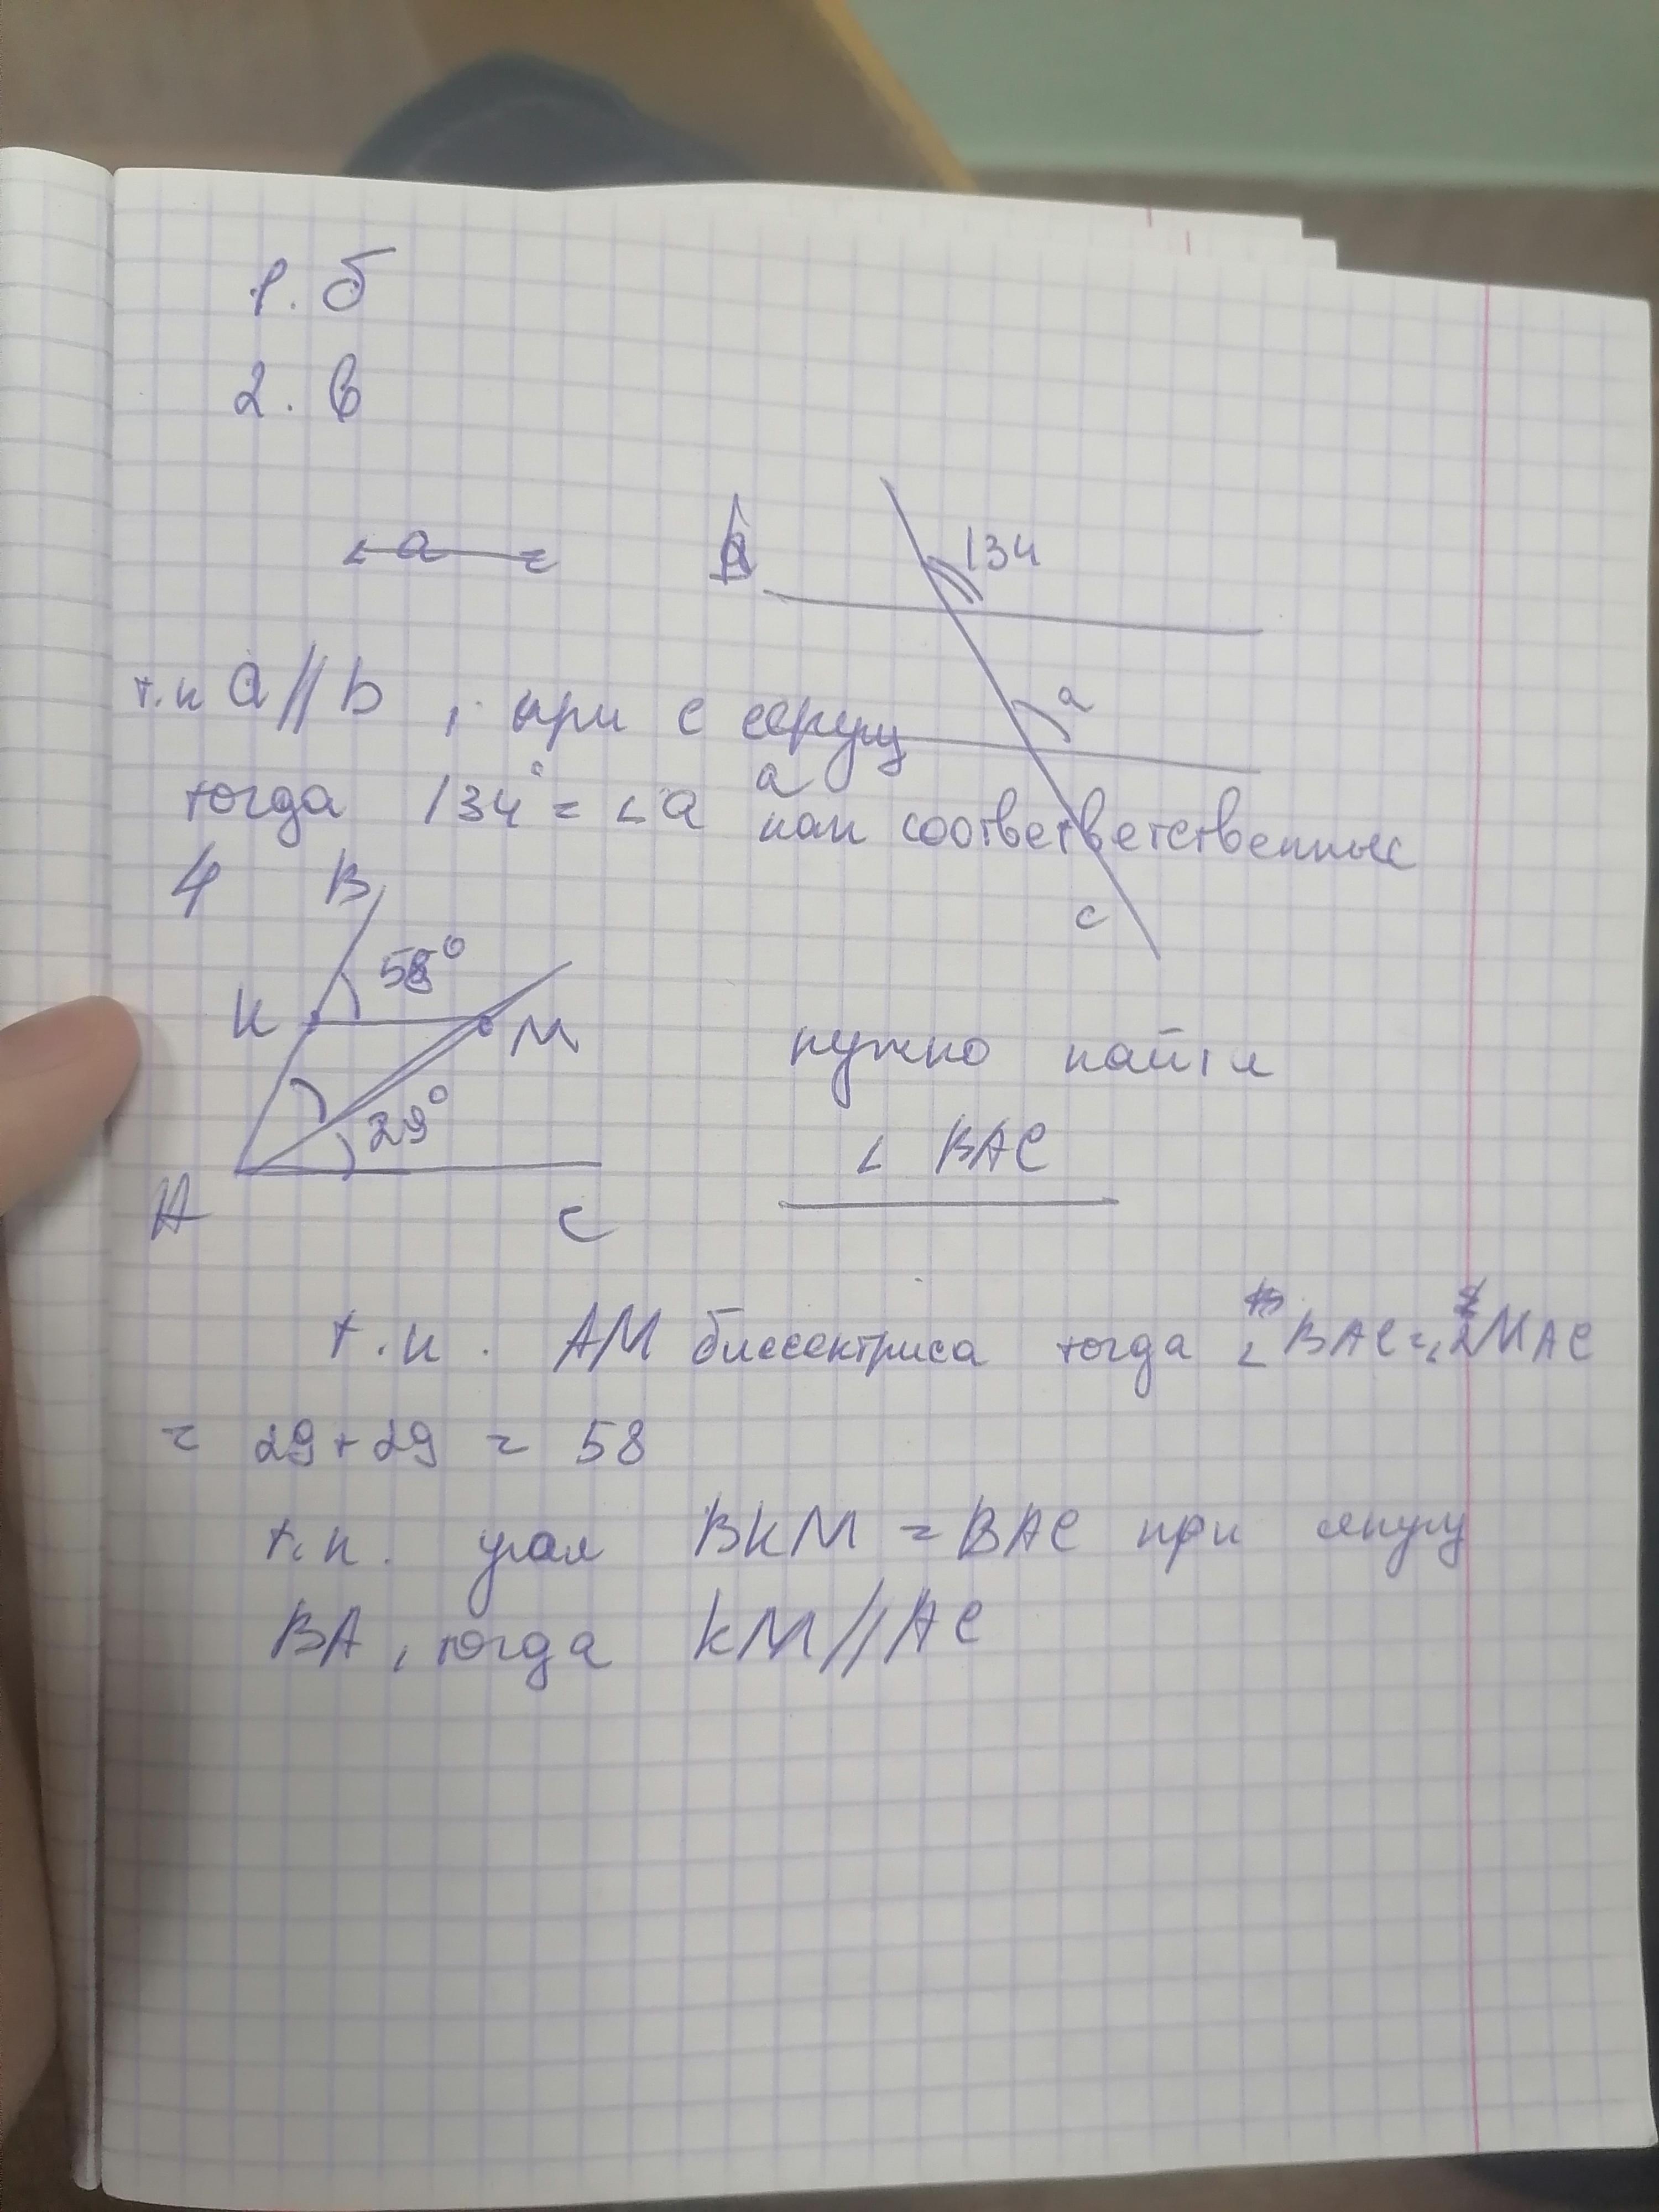 1. б
2. в
∠a =
134
т.к a // b, при с секущ
a
a
тогда 134° = ∠a как соответветственные
c
4 B
58°
K M
нужно найти
29°
∠ BAC
A C
т.к. AM биссектриса тогда ∠BAC=∠2MAC
= 29+29 = 58
т.к. угол BKM = BAC при
BA, тогда KM//AC